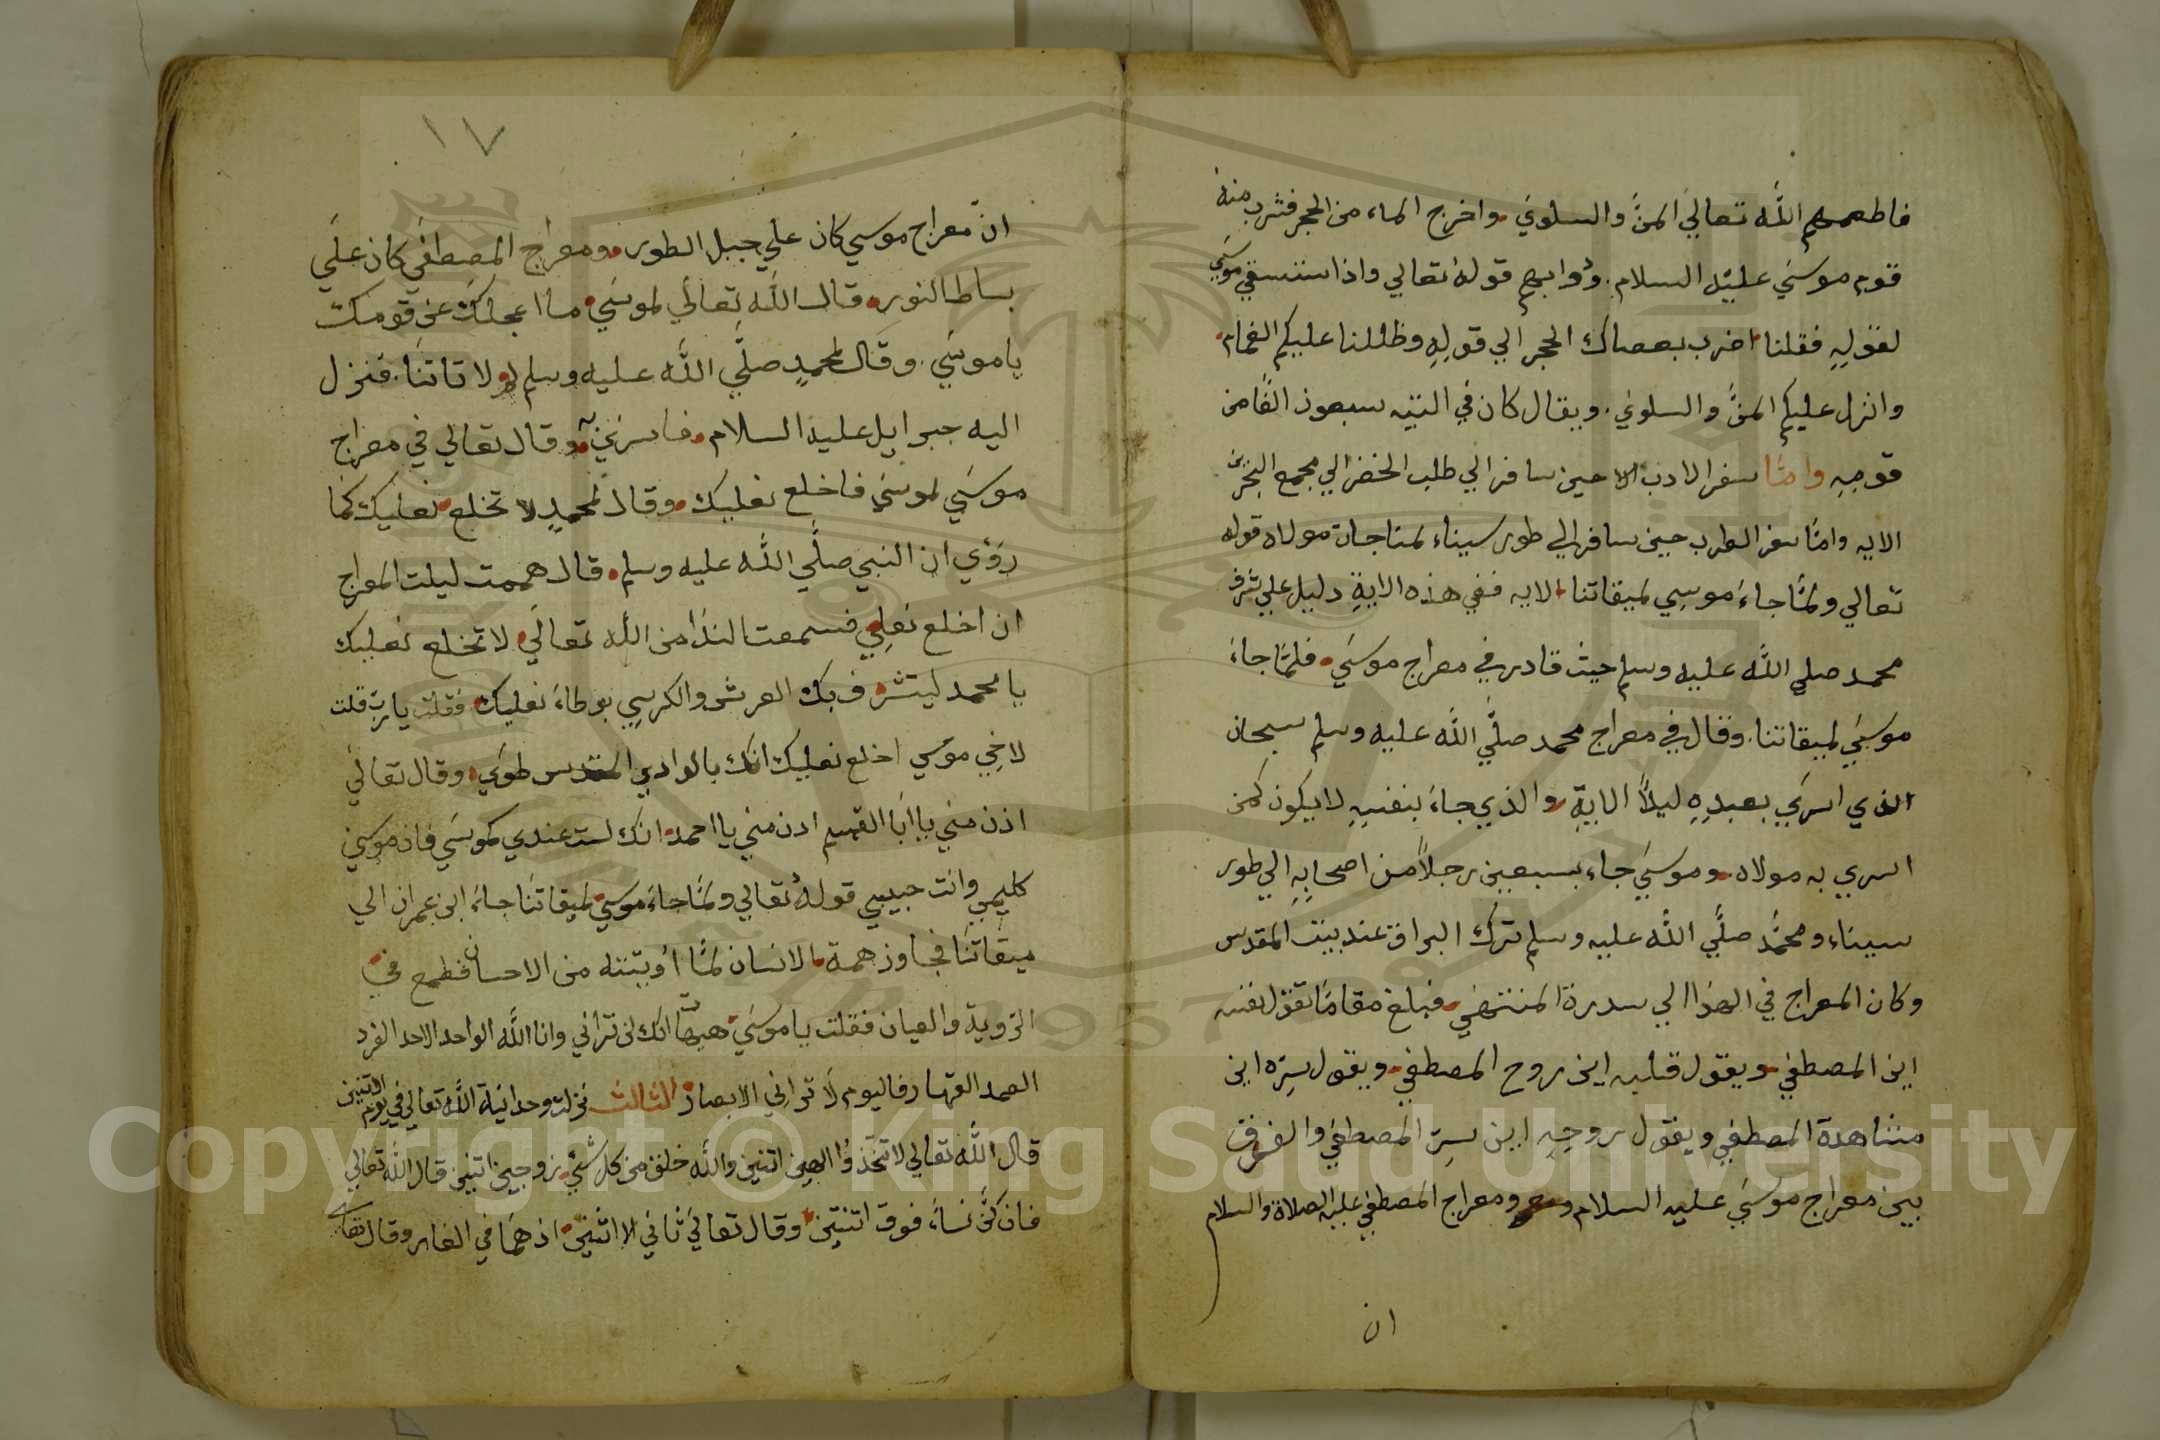 فاطعمهم الله تعالي المنَّ والسلوي واخرج الماء من الحجر فشرب منه
قوم موسي عليه السلام ودوابهم قوله تعالي واذا ستسقي موسي
لقوله فقلنا اضرب بعصاك الحجر الي قوله وظللنا عليكم الغمام
وانزل عليكم المنَّ والسلوي ويقال كان في التيه سبعون الفًا من
قومه وامّا سفر الادب الا حين سافر الي طلب الخضر الي مجمع البحرين
الايه وامّا سفر الطرب حين سافر الي طور سيناء لمناجات مولاه قوله
تعالي ولمّا جاءَ موسي لميقاتنا الايه ففي هذه الاية دليل علي شرف
محمد صلي الله عليه وسلم حيث قادر في معراج موسي فلمّا جاءَ
موسي لميقاتنا وقال في معراج محمد صلَّي الله عليه وسلم سبحان
الذي اسري بعبدِهِ ليلاً الايةِ والذي جاءَ بنفسِهِ لا يكون كمن
اسري به مولاه وموسي جاء بسبعين رجلاً من اصحابِهِ الي طور
سيناء ومحمَّد صلَّي الله عليه وسلم ترك البراق عند بيت المقدس
وكان المعراج في الهوا الي سدرة المنتهي فبلغ مقامًا تقول نفسه
اين المصطفي ويقول قلبه اين روح المصطفي ويقول سِرّه اين
مشاهدة المصطفي ويقول روحِهِ اين سِرّ المصطفي والفرق
بين معراج موسي عليه السلام ومعراج المصطفي عليه الصلاة والسلام
ان
١٧
انّ معراج موسي كان علي جبل الطور ومعراج المصطفي كان علَي
بساط النور قال الله تعالي لموسي ما اعجلك عن قومك
يا موسي وقال لمحمدٍ صلَّي الله عليه وسلم لولا تاتنا فنزل
اليه جبرايل عليه السلام فاسرني وقال تعالي في معراج
موسي لموسي فاخلع نعليك وقال لمحمدٍ لا تخلع نعليك كما
رؤي ان النبي صلَّي الله عليه وسلم قال هممت ليلت المعراج
ان اخلع نعلي فسمعت الندا من الله تعالي لا تخلع نعليك
يا محمد ليتشرف بك العرش والكرسي بوطاءَ نعليك فقلت يا ربّ قلت
لاخي موسي اخلع نعليك انّك بالوادي المقدس طوي وقال تعالي
ادن مني يا ابا القسم ادن مني يا احمد انك لست عندي كموسي فان موسي
كليمي وانت حبيبي قوله تعالي ولمّا جاءَ موسي لميقاتنا جاءَ ابن عمران الي
ميقاتنا فجاوز همة الانسان لمّا أوبتته من الاحسان فطمع في
الروية والعيان فقلت يا موسي هيهّات انّك لن تراني وانا الله الواحد الاحد الفرد
الصمد القهار فاليوم لا تراني الابصار الثالث نزلت وحدانية الله تعالي في يوم الاتنين
قال الله تعالي لا تتخذوا الهين اتنين والله خلق من كل شئ زوجين اتنين قال الله تعالي
فان كنّ نساءً فوق اتنتين وقال تعالي ثاني الا اثنين اذ هما في الغار وقال تعالي
Copyright © King Saud University
1957